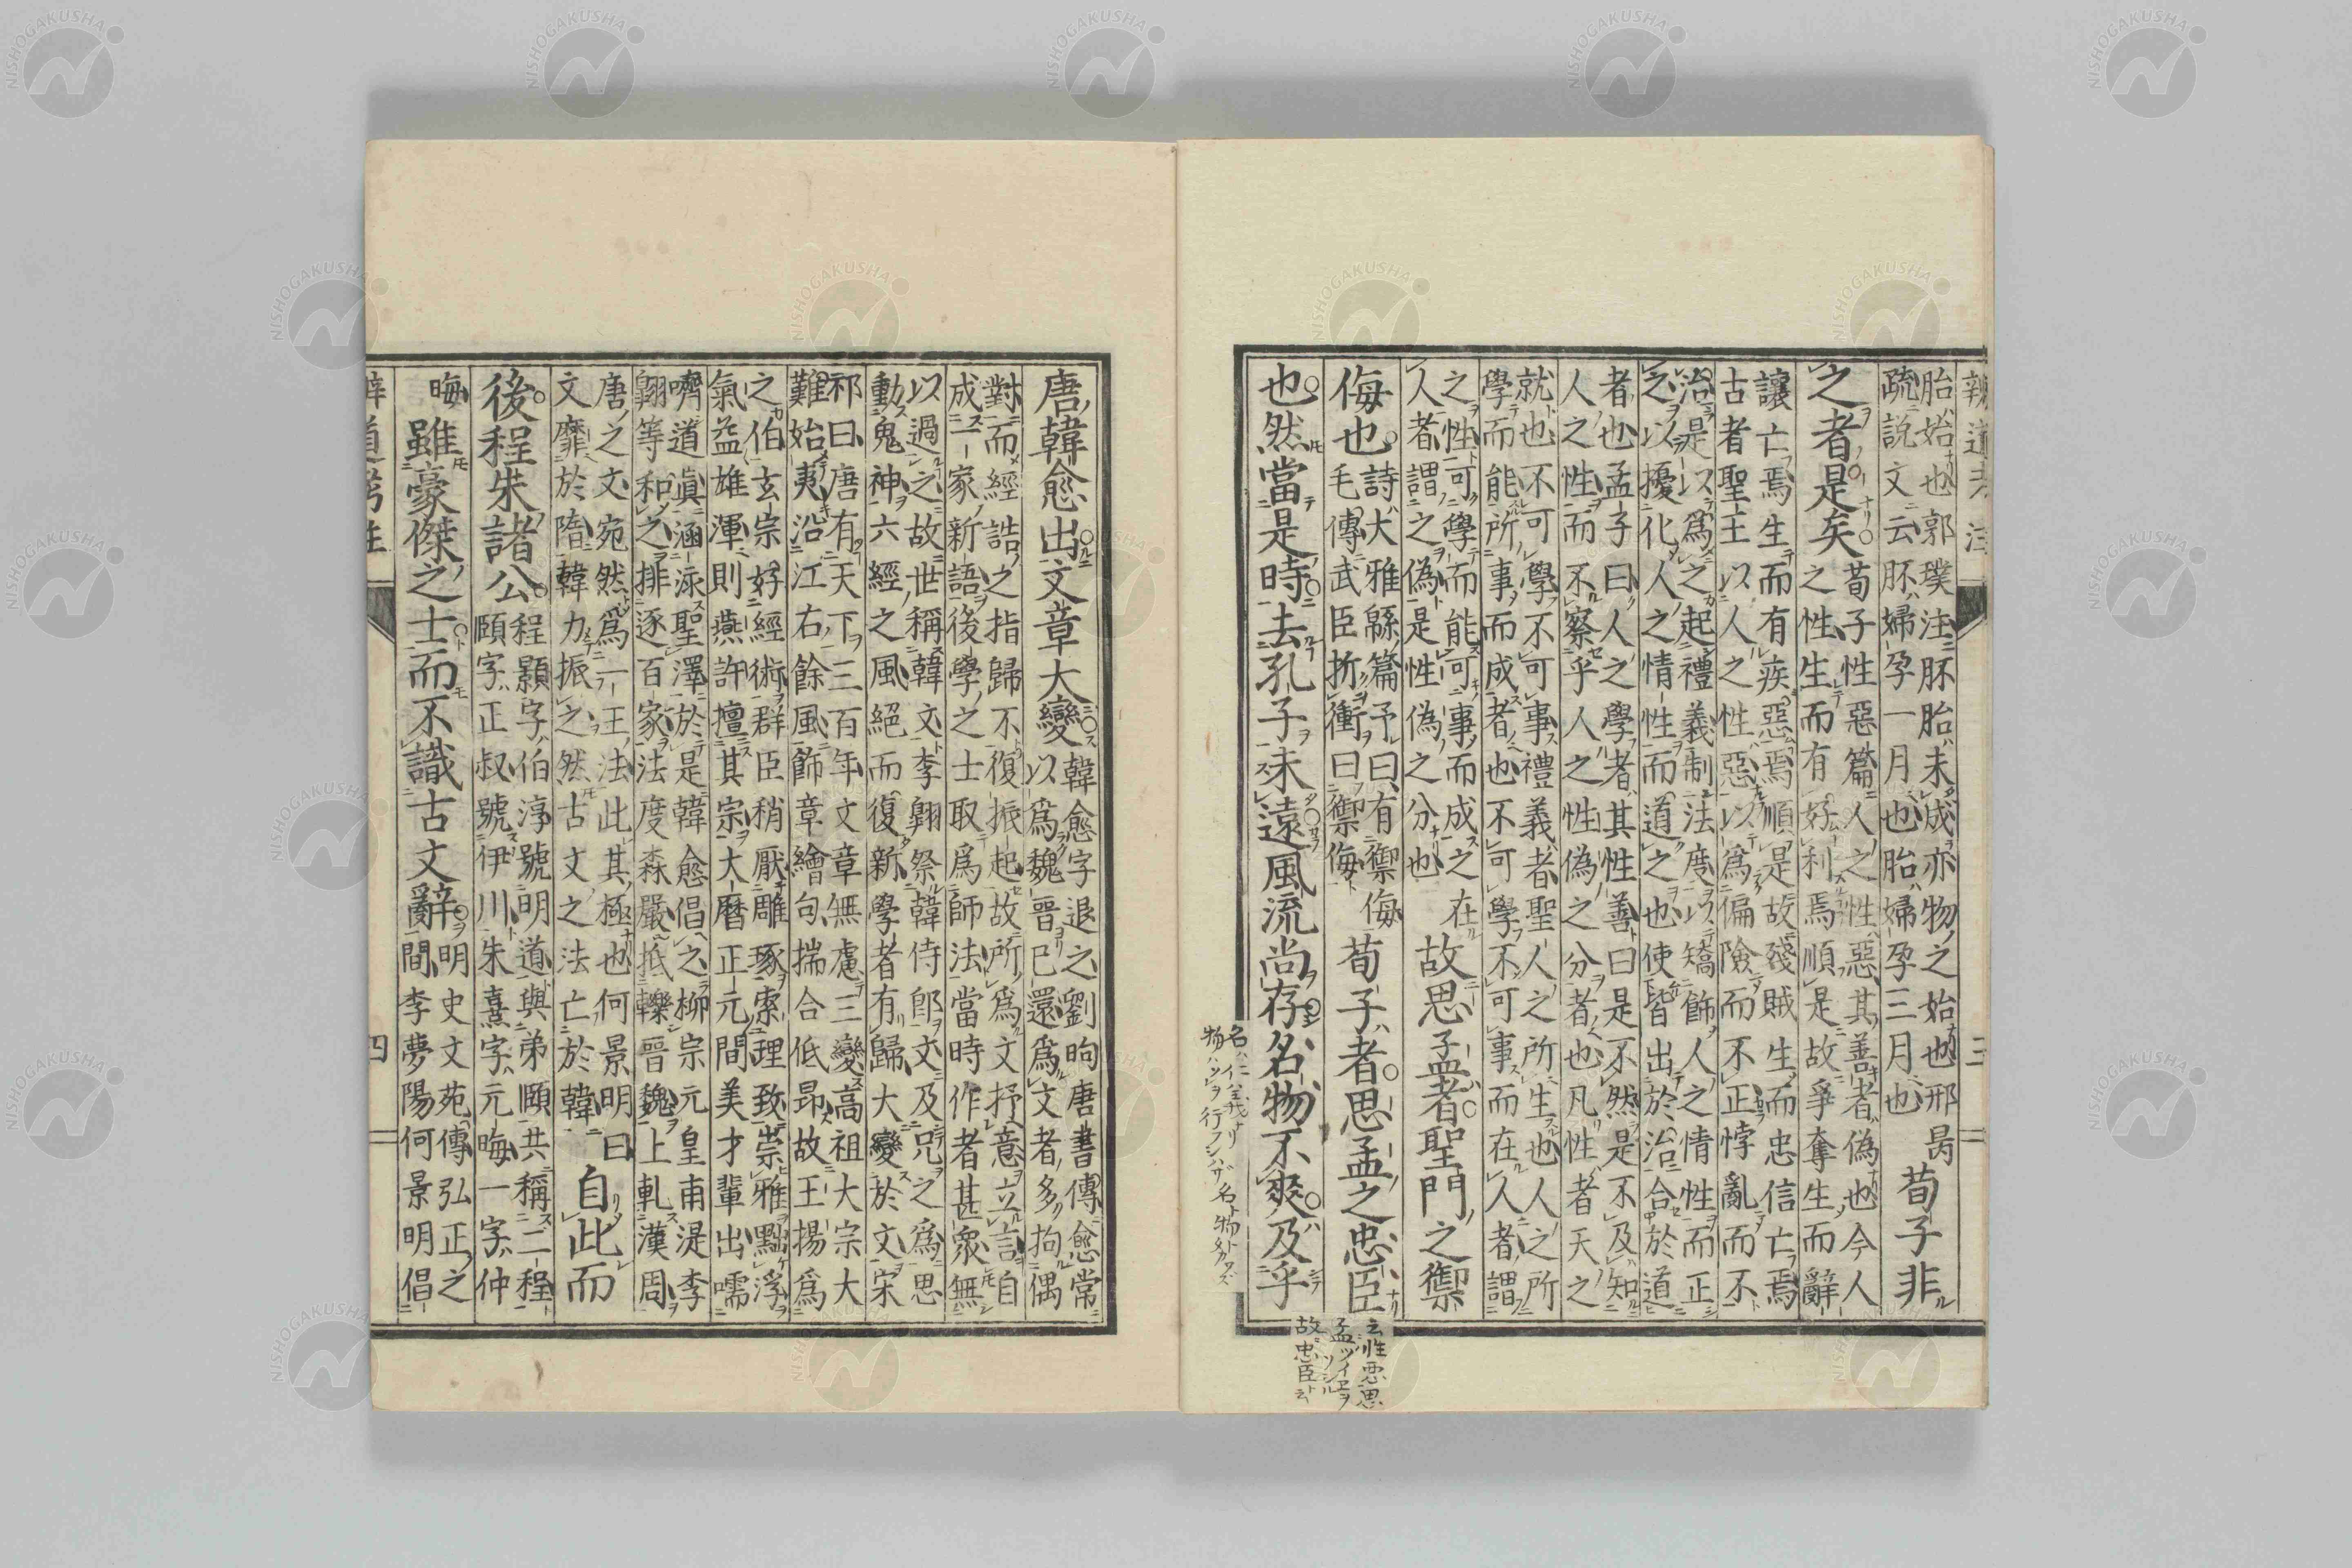 辨道考注
三
胎始也郭璞注胚胎未成亦物之始也邢昺
疏說文云胚婦孕一月也胎婦孕三月也
荀子非
之者是矣
荀子性惡篇人之性惡其善者偽也今人
之性生而有好利焉順是故爭奪生而辭
讓亡焉生而有疾惡焉順是故殘賊生而忠信亡焉
古者聖王以人之性惡以為偏險而不正悖亂而不
治是以為之起禮義制法度以矯飾人之情性而正
之以擾化人之情性而道之也使皆出於治合於道
者也孟子曰人之學者其性善曰是不然是不及知
人之性而不察乎人之性偽之分者也凡性者天之
就也不可學不可事禮義者聖人之所生也人之所
學而能所事而成者也不可學不可事而在人者謂
之性可學而能可事而成之在
人者謂之偽是性偽之分也
故思孟者聖門之禦
侮也
詩大雅緜篇予曰有禦侮
毛傳武臣折衝曰禦侮
荀子者思孟之忠臣
也然當是時去孔子未遠風流尚存名物不爽及乎
云性悪思
孟ツイヱヲ
ツシル
故忠臣ト云
名ハ仁義ナリ
物ハソレヲ行フシハザ名ト物タガハズ
唐韓愈出文章大變
韓愈字退之劉昫唐書傳愈常
以為魏晉已還為文者多拘偶
對而經誥之指歸不復振起故所為文抒意立言自
成一家新語後學之士取為師法當時作者甚衆無
以過之故世稱韓文李翺祭韓侍郎文及兄之為思
動鬼神六經之風絕而復新學者有歸大變於文宋
祁曰唐有天下三百年文章無慮三變高祖大宗大
難始夷沿江右餘風飾章繪句揣合低昂故王揚為
之伯玄宗好經術群臣稍厭雕琢索理致崇雅黜浮
氣益雄渾則燕許擅其宗大曆正元間美才輩出嚅
嚌道滇涵泳聖澤於是韓愈倡之柳宗元皇甫湜李
翺等和之排逐百家法度森嚴抵轢晉魏上軋漢周
唐之文宛然為一王法此其極也何景明曰
文靡於隋韓力振之然古文之法亡於韓
自此而
後程朱諸公
程顥字伯淳號明道與弟頤共稱二程
頤字正叔號伊川朱熹字元晦一字仲
晦
雖豪傑之士而不識古文辭
明史文苑傳弘正之
間李夢陽何景明倡
辨道考注
四